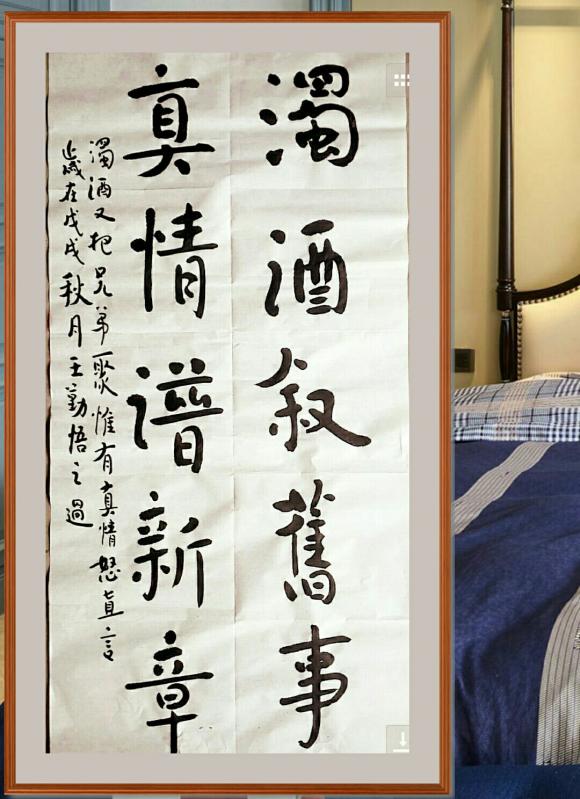 濁酒叙舊事
真情譜新章
濁酒又把兄弟聚惟有真情怒直言
歲在戊戌秋月王勤悟之過